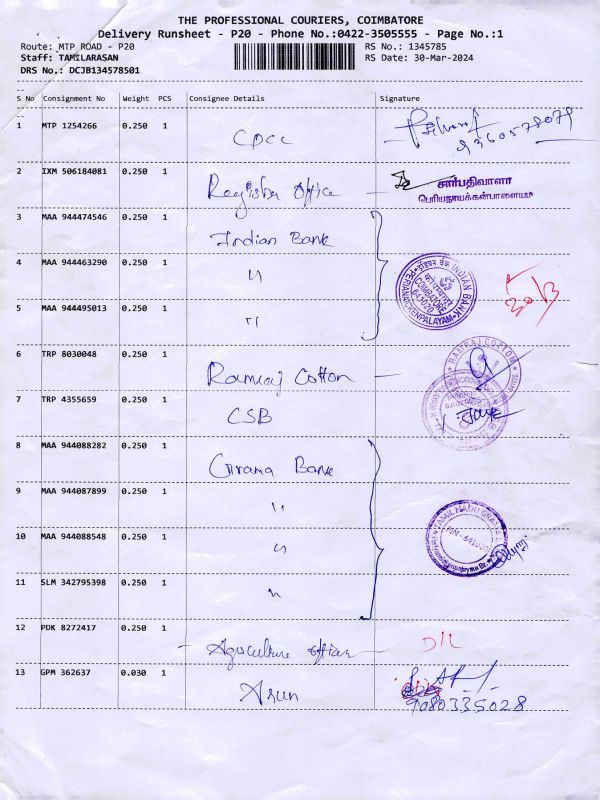 THE PROFESSIONAL COURIERS, COIMBATORE
Delivery Runsheet - P20 - Phone No.:0422-3505555 - Page No.:1
Route: MTP ROAD - P20 RS No.: 1345785
Staff: TAMILARASAN RS Date: 30-Mar-2024
DRS No.: DCJB134578501
S No Consignment No Weight PCS Consignee Details Signature
1 MTP 1254266 0.250 1 CPCC 9360578079
2 IXM 506184081 0.250 1 Register Office சார்பதிவாளர்
பெரியநாயக்கன்பாளையம்
3 MAA 944474546 0.250 1 Indian Bank
4 MAA 944463290 0.250 1 〃 INDIAN BANK COIMBATORE 641020 PERIANAICKENPALAYAM 30/3
5 MAA 944495013 0.250 1 〃
6 TRP 8030048 0.250 1 Ramraj Cotton RAMRAJ COTTON
7 TRP 4355659 0.250 1 CSB
8 MAA 944088282 0.250 1 Grama Bank
9 MAA 944087899 0.250 1 〃 TAMIL NADU GRAMA PIN - 641020
10 MAA 944088548 0.250 1 〃
11 SLM 342795398 0.250 1 〃
12 PDK 8272417 0.250 1 Agriculture office D/L
13 GPM 362637 0.030 1 Arun 9080335028